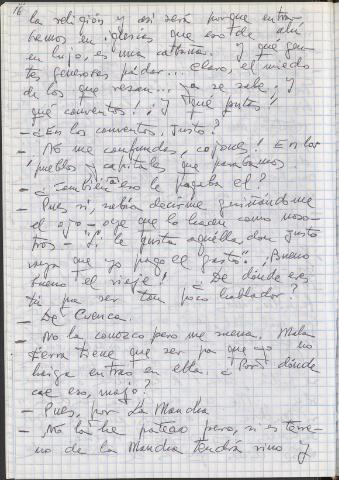 16
la religión y así será porque entrá-
bamos en iglesias que eso de
en lujo, es una
tes generosas
de los que rezan... ya se sabe. ¡Y
qué conventos! ¡Y qué putas!
- ¿En los conventos, Justo?
- ¡No me confundas, cojones! En los
pueblos y capitales que parábamos.
- ¿También eso le pagaba él?
- Pues sí, sabía decirme guiñándome
el ojo - oye que lo hacen como noso-
tros - "Si le gusta aquélla, don Justo
vaya que yo pago el gasto". ¡Bueno
bueno el viaje! ¿De dónde eres
tú pa ser tan poco hablador?
- De Cuenca.
- No la conozco pero me suena. Mala
tierra tiene que ser pa que yo no
haiga entrao en ella. ¿Por dónde
cae eso, majo?
- Pues, por La Mancha
- No la he pateao pero, si es terre-
no de la Mancha tendrá vino y